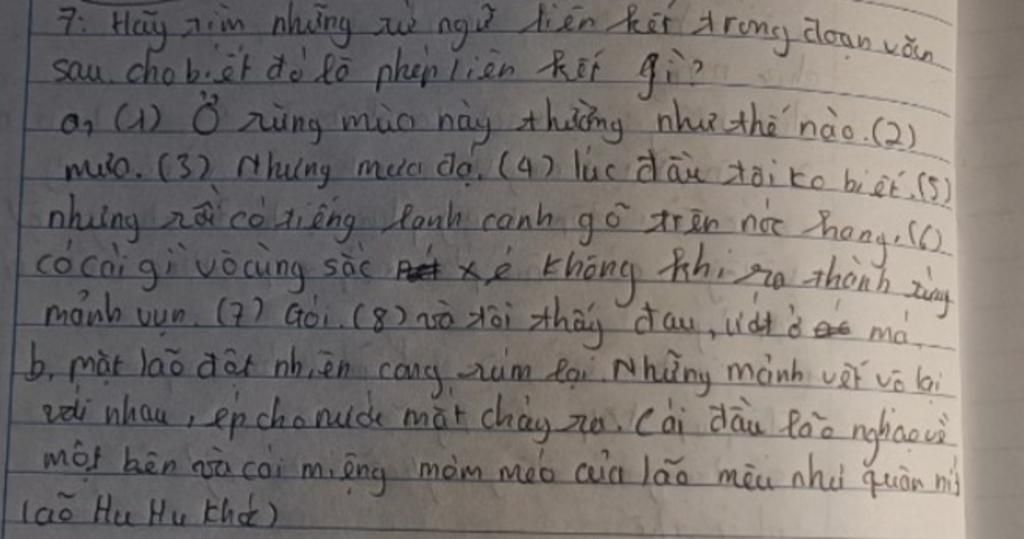 7: Hãy tìm những từ ngữ liên kết trong đoạn văn
sau cho biết đó là phép liên kết gì?
a, (1) Ở rừng mùa này thường như thế nào. (2)
mưa. (3) Nhưng mưa đá. (4) lúc đầu tôi ko biết. (5)
nhưng rồi có tiếng lanh canh gõ trên nóc hang. (6)
có cái gì vô cùng sắc xé không khí ra thành từng
mảnh vụn. (7) Gói. (8) và tôi thấy đau, ướt ở má
b, mặt lão đột nhiên cang rúm lại. Những mảnh vết vô lại
với nhau, ép cho nước mắt chảy ra. Cái đầu lão nghạo về
một bên và cái miệng móm mém của lão mếu như quân nít
lão Hu Hu khóc)